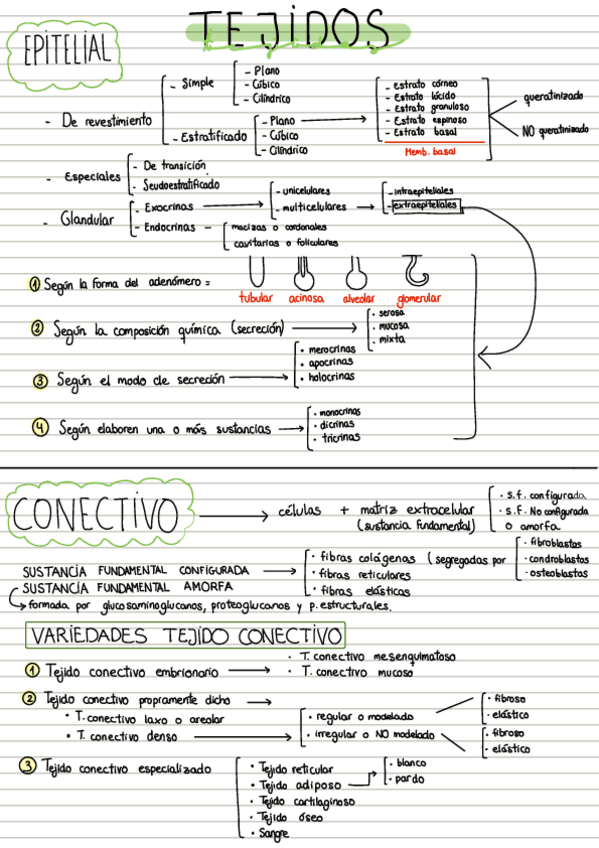 TEJIDOS
EPITELIAL
- De revestimiento
- Simple
- Plano
- Cúbico
- Cilíndrico
- Estratificado
- Plano
- Cúbico
- Cilíndrico
- Estrato córneo
- Estrato lúcido
- Estrato granuloso
- Estrato espinoso
- Estrato basal
Memb. basal
queratinizado
NO queratinizado
- Especiales
- De transición
- Seudoestratificado
- Glandular
- Exocrinas
- unicelulares
- multicelulares
- intraepiteliales
- extraepiteliales
- Endocrinas -
macizas o cordonales
cavitarias o foliculares
1 Según la forma del adenómero =
tubular acinosa alveolar glomerular
2 Según la composición química (secreción)
· serosa
· mucosa
· mixta
3 Según el modo de secreción
· merocrinas
· apocrinas
· holocrinas
4 Según elaboren una o más sustancias
· monocrinas
· dicrinas
· tricrinas
CONECTIVO
células + matriz extracelular
(sustancia fundamental)
· s.f. configurada
· s.f. No configurada
o amorfa
SUSTANCIA FUNDAMENTAL CONFIGURADA
· fibras colágenas (segregadas por
· fibroblastos
· condroblastos
· osteoblastos
· fibras reticulares
· fibras elásticas
SUSTANCIA FUNDAMENTAL AMORFA
formada por glucosaminoglucanos, proteoglucanos y p. estructurales.
VARIEDADES TEJIDO CONECTIVO
1 Tejido conectivo embrionario
· T. conectivo mesenquimatoso
· T. conectivo mucoso
2 Tejido conectivo propiamente dicho
• T. conectivo laxo o areolar
• T. conectivo denso
· regular o modelado
· fibroso
· elástico
· irregular o NO modelado
· fibroso
· elástico
3 Tejido conectivo especializado
• Tejido reticular
• Tejido adiposo
· blanco
· pardo
• Tejido cartilaginoso
• Tejido óseo
• Sangre